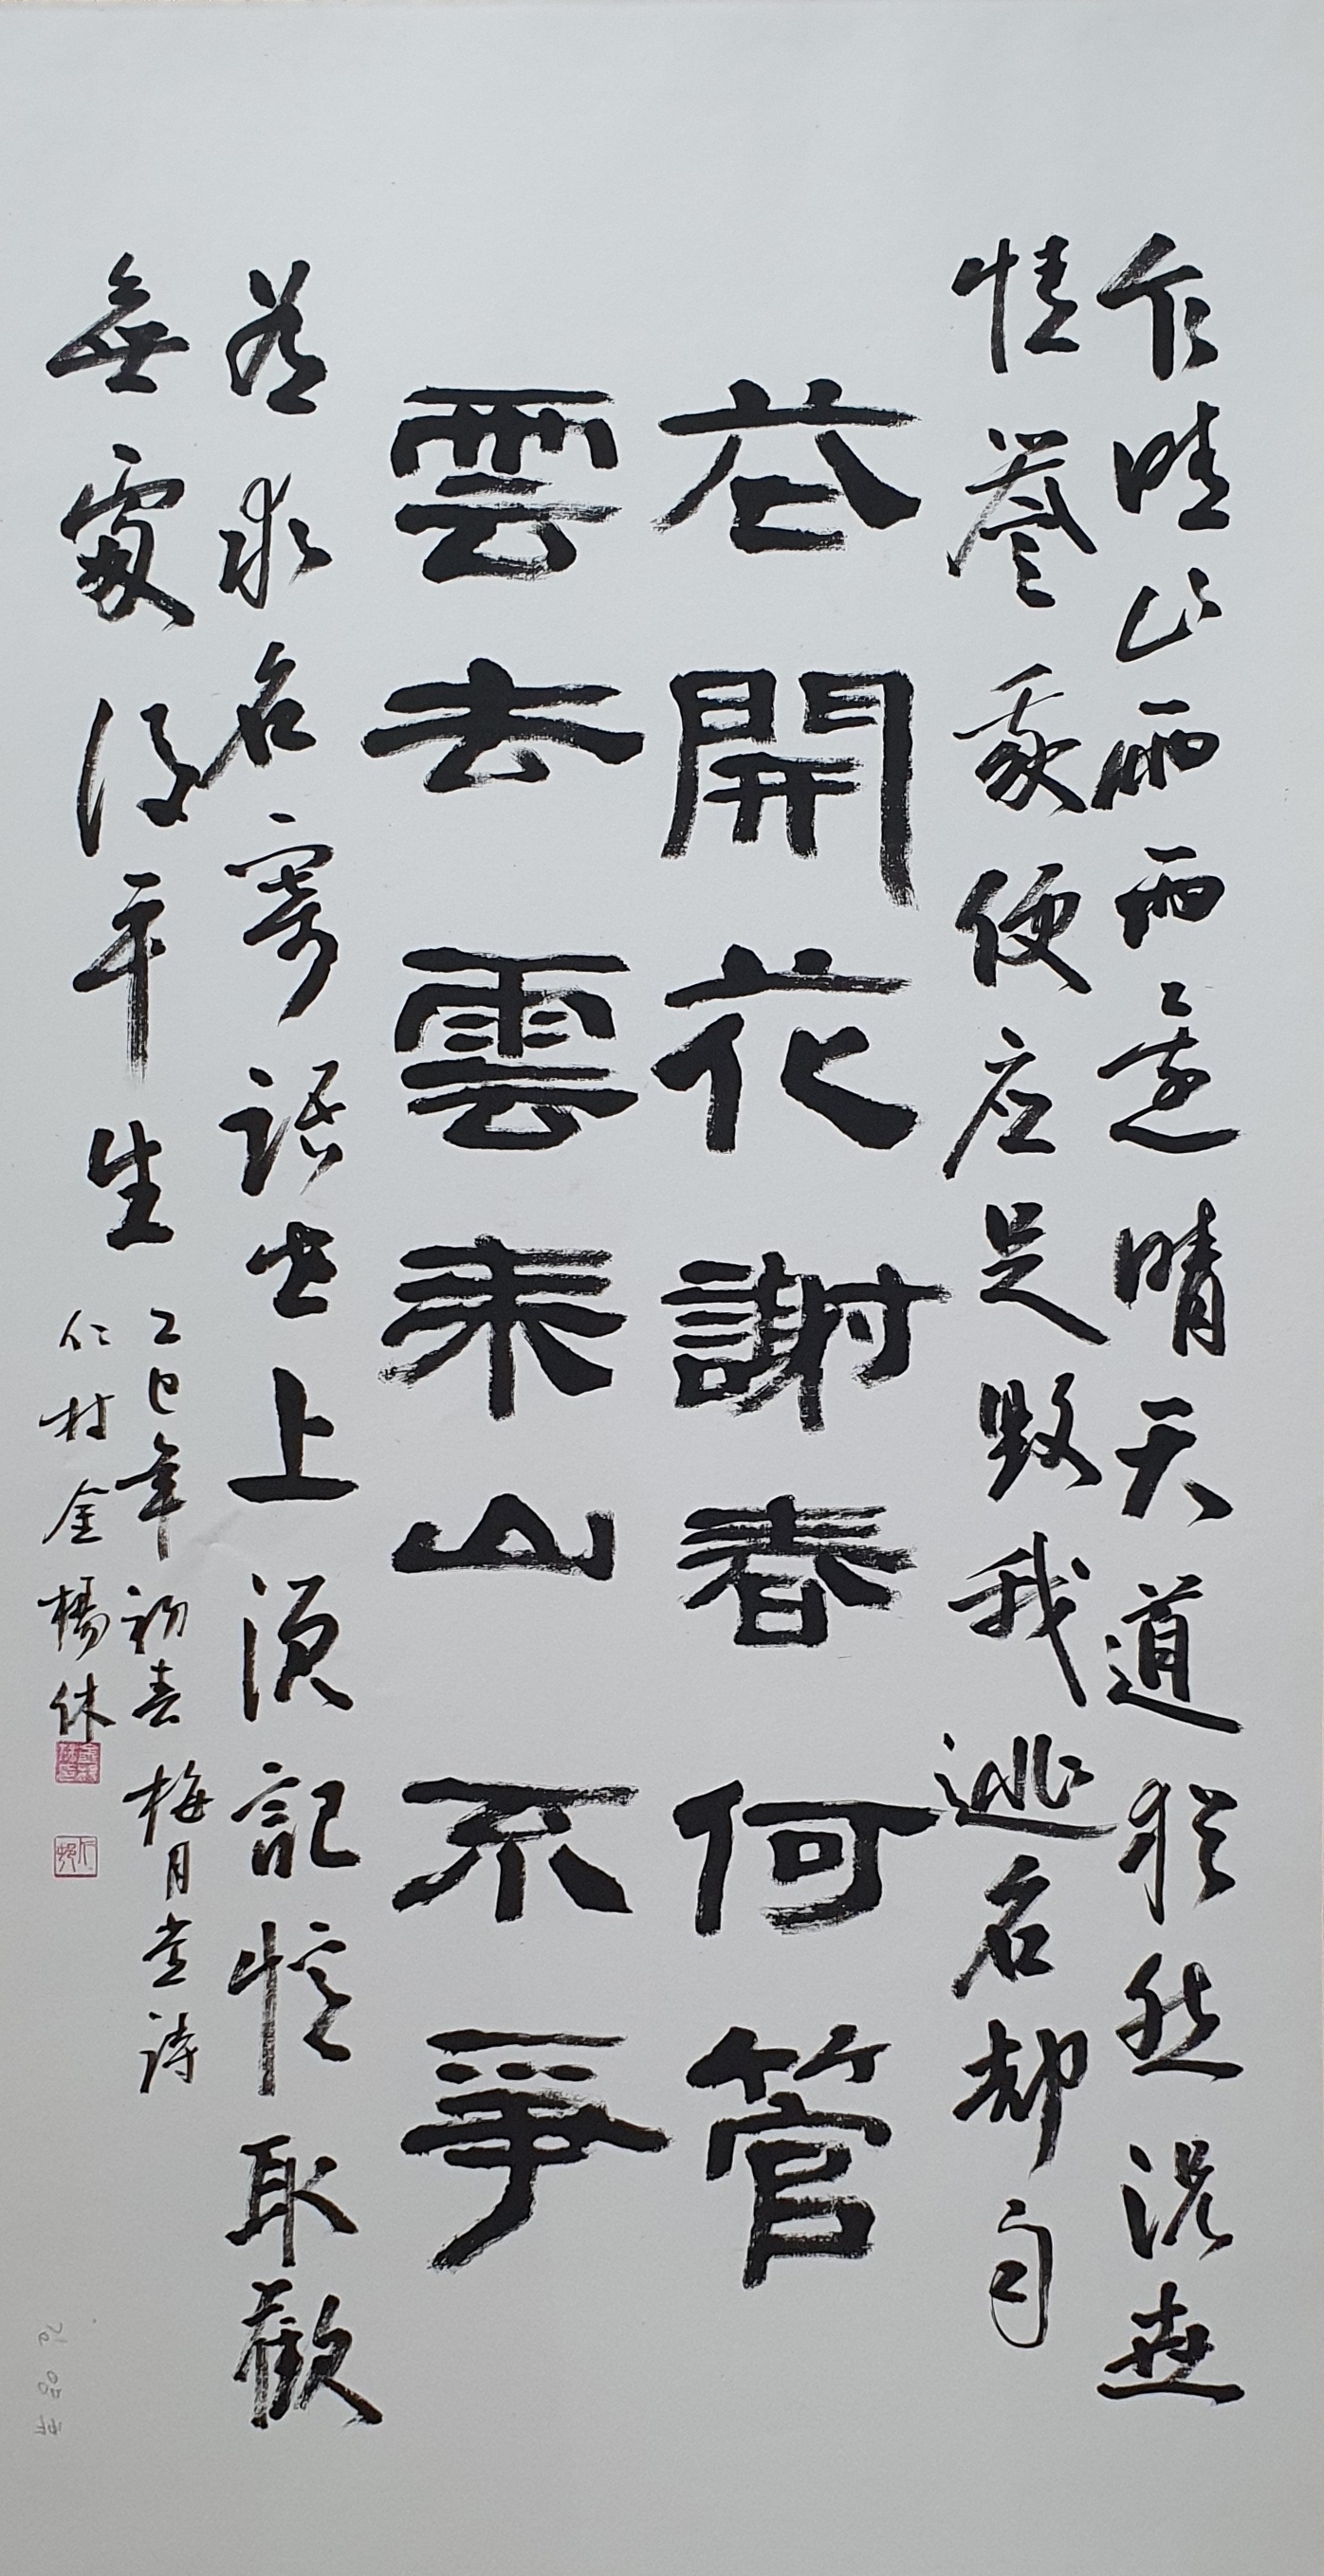 乍晴乍雨雨還晴天道猶然況世
情譽我便應是毀我逃名却自
花開花謝春何管
雲去雲來山不爭
為求名寄語世上須記憶取歡
無處得平生
乙巳年初春 梅月堂詩
仁村金楊休
김양휴